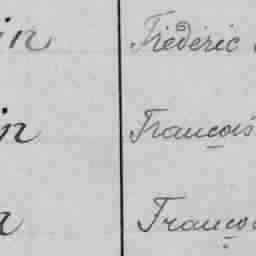 in Frédéric
in François
n Franço